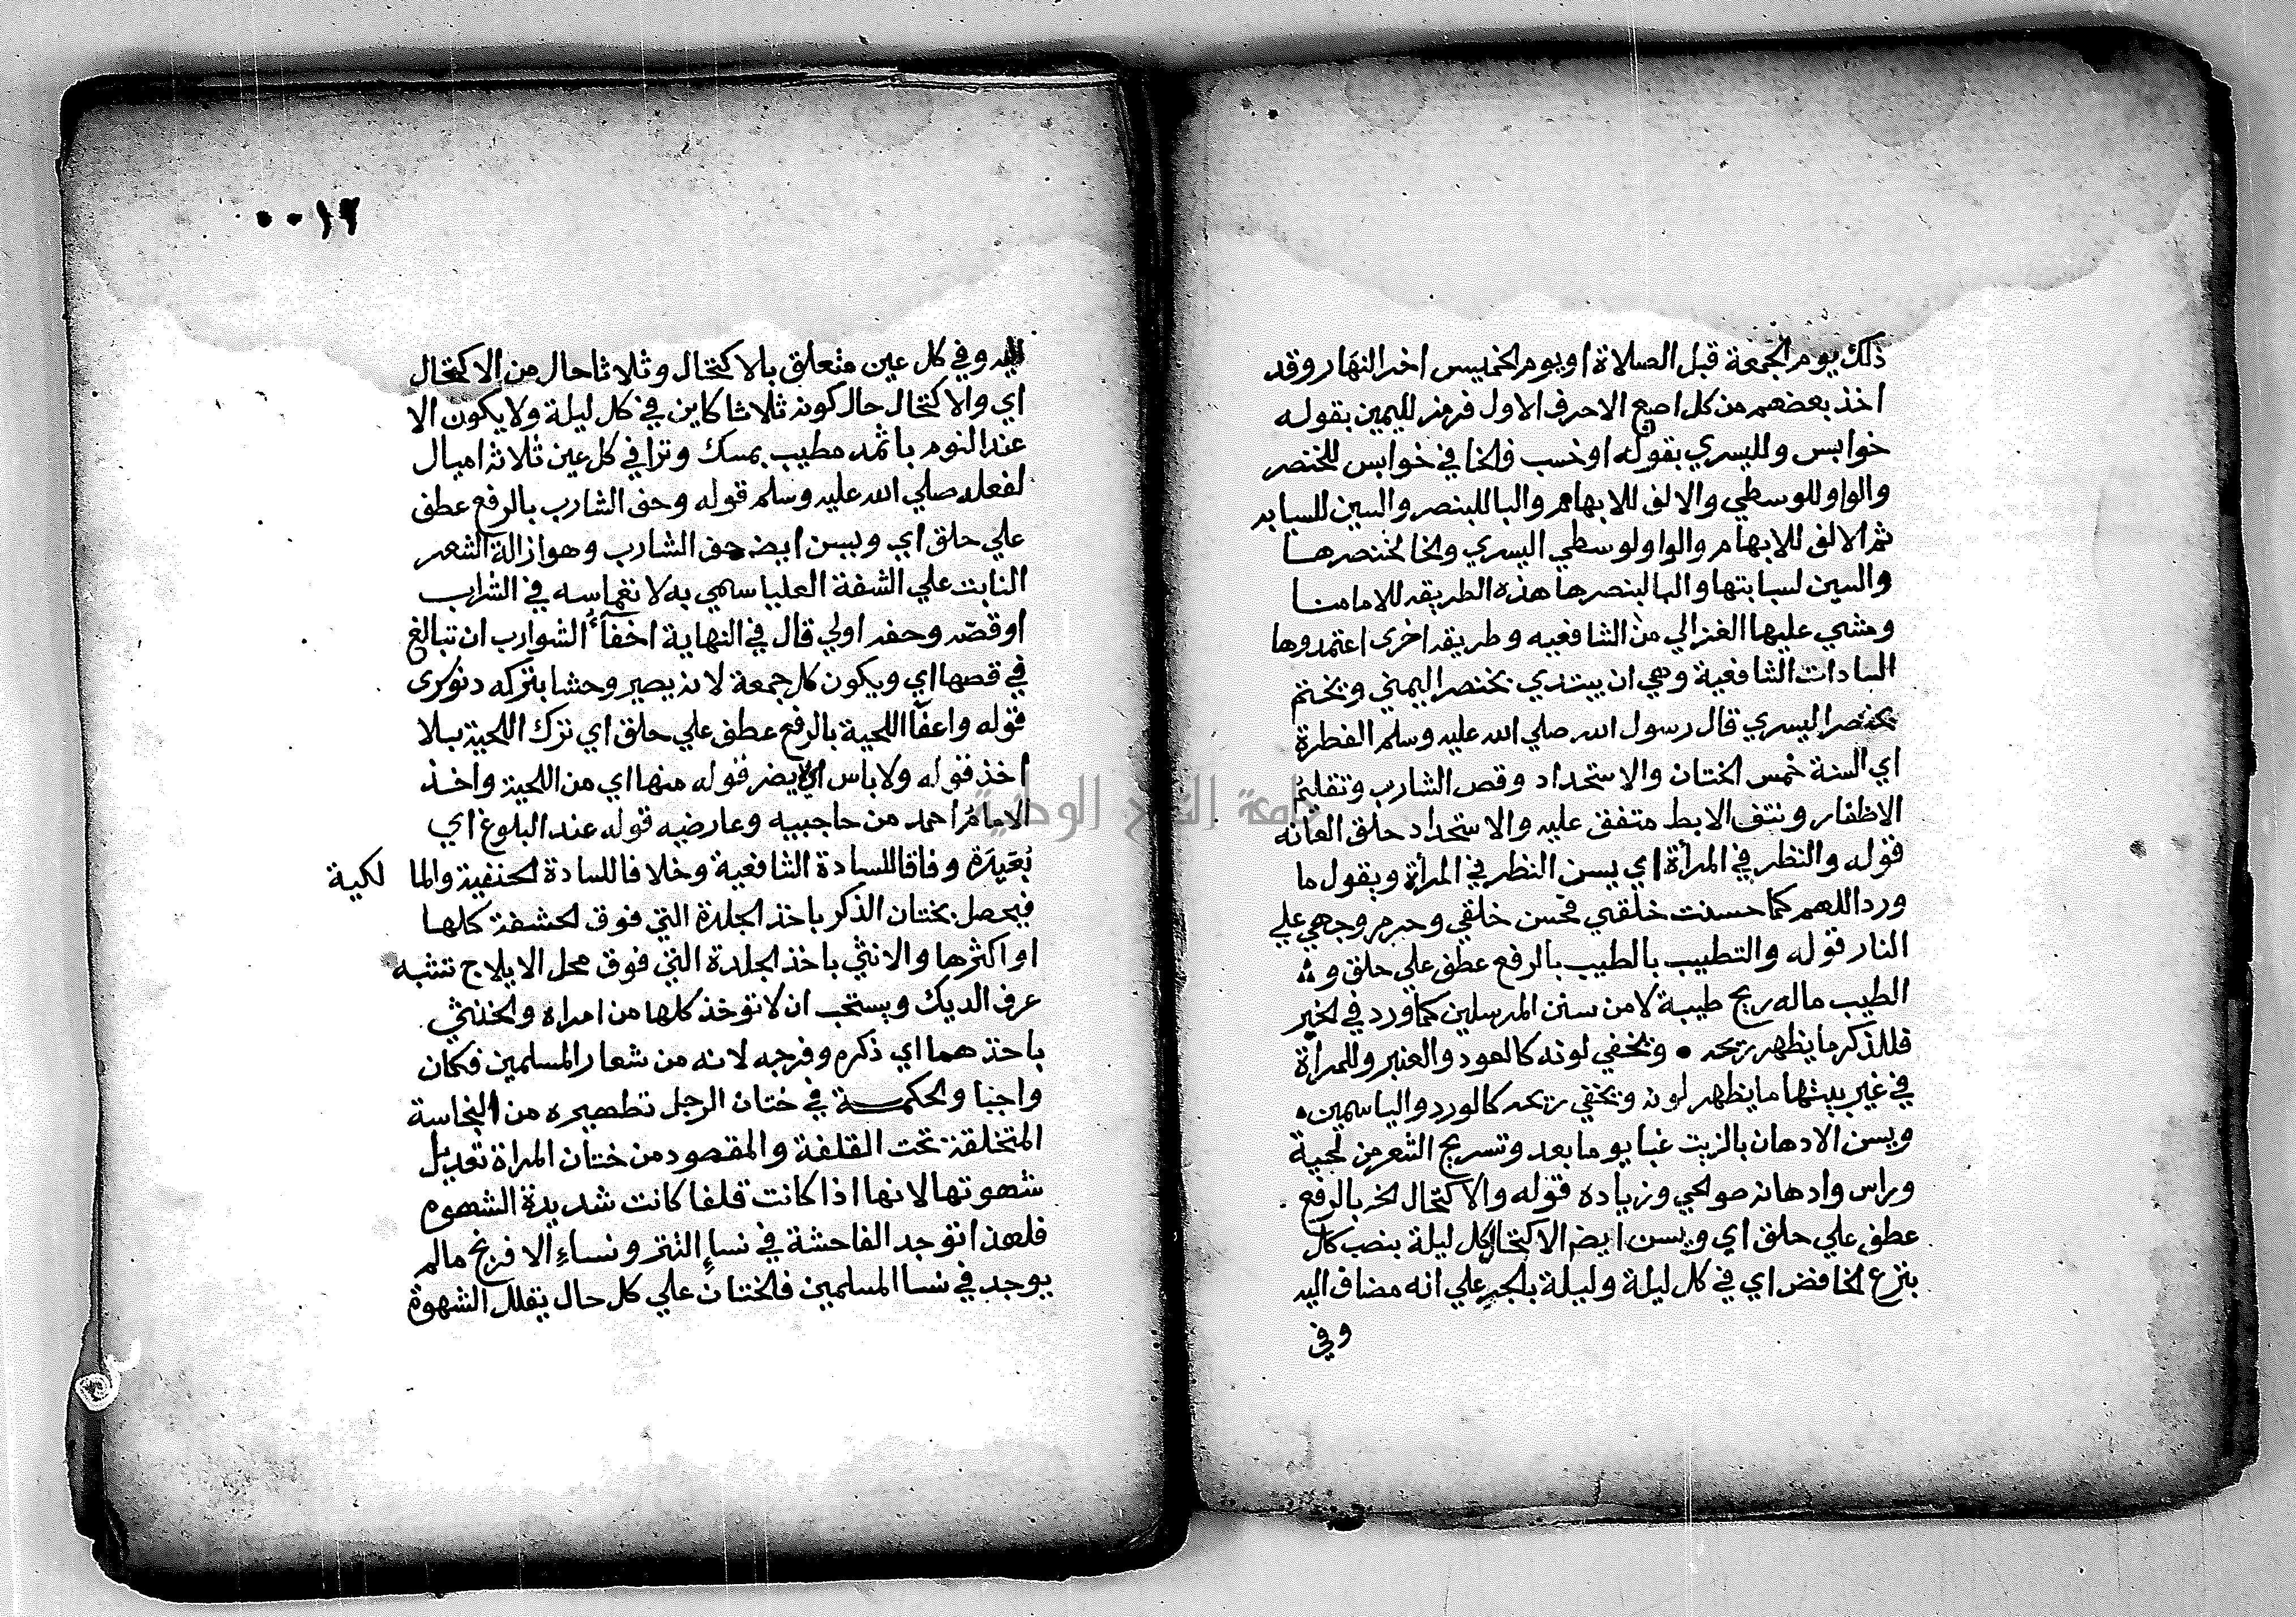 ذلك يوم الجمعة قبل الصلاة او يوم الخميس اخر النهار وقد
اخذ بعضهم من كل اصبع الاحرف الاول فرمز لليمين بقوله
خوابس ولليسري بقوله اوخسب فالخا في خوابس للخنصر
والواو للوسطي والالف للابهام والبا للبنصر والسين للسبابه
ثم الالف للابهام والواو لوسطي اليسري والخا لخنصرها
والسين لسبابتها والبا لبنصرها هذه الطريقه للامامنا
ومشي عليها الغزالي من الشافعيه وطريقه اخرى اعتمدوها
السادات الشافعية وهي ان يبتدي بخنصر اليمني ويختم
بخنصر اليسري قال رسول الله صلي الله عليه وسلم الفطرة
اي السنة خمس الختان والاستحداد وقص الشارب وتقليم
الاظفار ونتف الابط متفق عليه والاستحداد حلق العانه
قوله والنظر في المرأة اي يسن النظر في المرأة ويقول ما
ورد اللهم كما حسنت خلقي فحسن خلقي وحرم وجهي علي
النار قوله والتطيب بالطيب بالرفع عطف علي حلق و
الطيب ماله ريح طيبة لا من سنن المرسلين كما ورد في الخبر
فللذكر ما يظهر ريحه ويخفي لونه كالعود والعنبر وللمرأة
في غير بيتها ما يظهر لونه ويخفي ريحه كالورد والياسمين
ويسن الادهان بالزيت غبا يوما بعد وتسريح الشعر من لحية
وراس وادهانه صوالحي وزياده قوله والاكتحال الخ بالرفع
عطف علي حلق اي ويسن ايضم الاكتحال كل ليلة بنصب كل
بنزع الخافض اي في كل ليلة وليلة بالجر علي انه مضاف اليه
وفي
٠٠١٢
اليه وفي كل عين متعلق بالاكتحال وثلاثا حال من الاكتحال
اي والاكتحال حال كونه ثلاثا كاين في كل ليلة ولا يكون الا
عند النوم باثمد مطيب بمسك وترا في كل عين ثلاثة اميال
لفعله صلي الله عليه وسلم قوله وحف الشارب بالرفع عطف
علي حلق اي ويسن ايضم حف الشارب وهو ازالة الشعر
النابت علي الشفة العليا سمي به لانغماسه في الشراب
او قصه وحفه اولي قال في النهاية اخفأ الشوارب ان تبالغ
في قصها اي ويكون كل جمعة لانه يصير وحشا بتركه دنوكرى
قوله واعفآ اللحية بالرفع عطف علي حلق اي ترك اللحية بلا
اخذ قوله ولا باس اي لا يضر قوله منها اي من اللحية واخذ
الامام احمد من حاجبيه وعارضيه قوله عند البلوغ اي
بعيده وفاقا للسادة الشافعية وخلافا للسادة الحنفية والما لكية
فيحصل بختان الذكر باخذ الجلدة التي فوق الحشفة كلها
او اكثرها والانثي باخذ الجلدة التي فوق محل الايلاج تشبه
عرف الديك ويستحب ان لا توخذ كلها من امراه والخنثي
باخذ هما اي ذكره وفرجه لانه من شعار المسلمين فكان
واجبا والحكمــة في ختان الرجل تطهيره من النجاسة
المتخلقة تحت القلفة والمقصود من ختان المراة تعديل
شهوتها لانها اذا كانت قلفا كانت شديدة الشهوه
فلهذا توجد الفاحشة في نساء التتر ونساء الافرنج مالم
يوجد في نسا المسلمين فالختان علي كل حال يقلل الشهوة
جامعة النجاح الوطنية